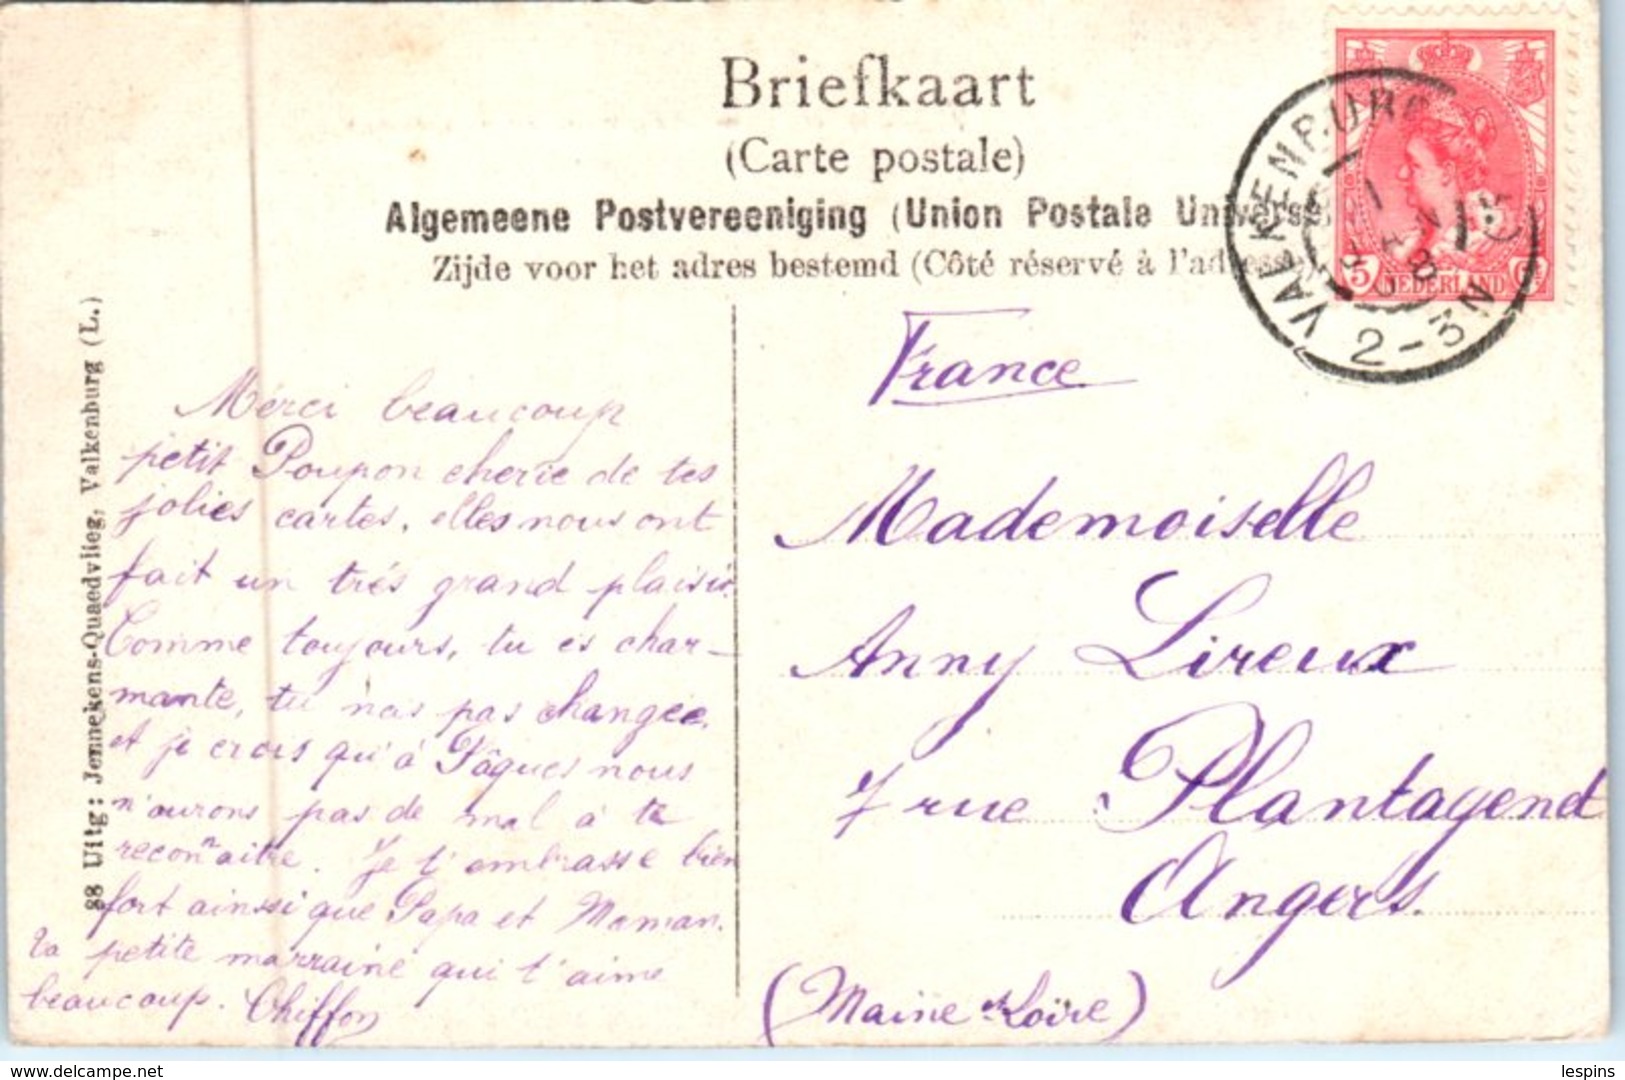 Briefkaart
(Carte postale)
Algemeene Postvereeniging (Union Postale Universe
Zijde voor het adres bestemd (Côté réservé à l'adresse)
VALKENBURG
1 JAN 08
2-3N
5 NEDERLAND
88 Uitg: Jennekens-Quaedvlieg, Valkenburg (L.)
Mérci beaucoup
petit Poupon cherie de tes
jolies cartes, elles nous ont
fait un trés grand plaisir.
Comme toujours, tu es char-
mante, tu nas pas changée,
et je crois qu'à Pâques nous
n'aurons pas de mal à te
reconnaitre. Je t'embrasse bien
fort ainssi que Papa et Maman.
ta petite marraine qui t'aime
beaucoup. Chiffon
France
Mademoiselle
Anny Lireux
7 rue Plantagenet
Angers.
(Maine et Loire)
delcampe.net
lespins